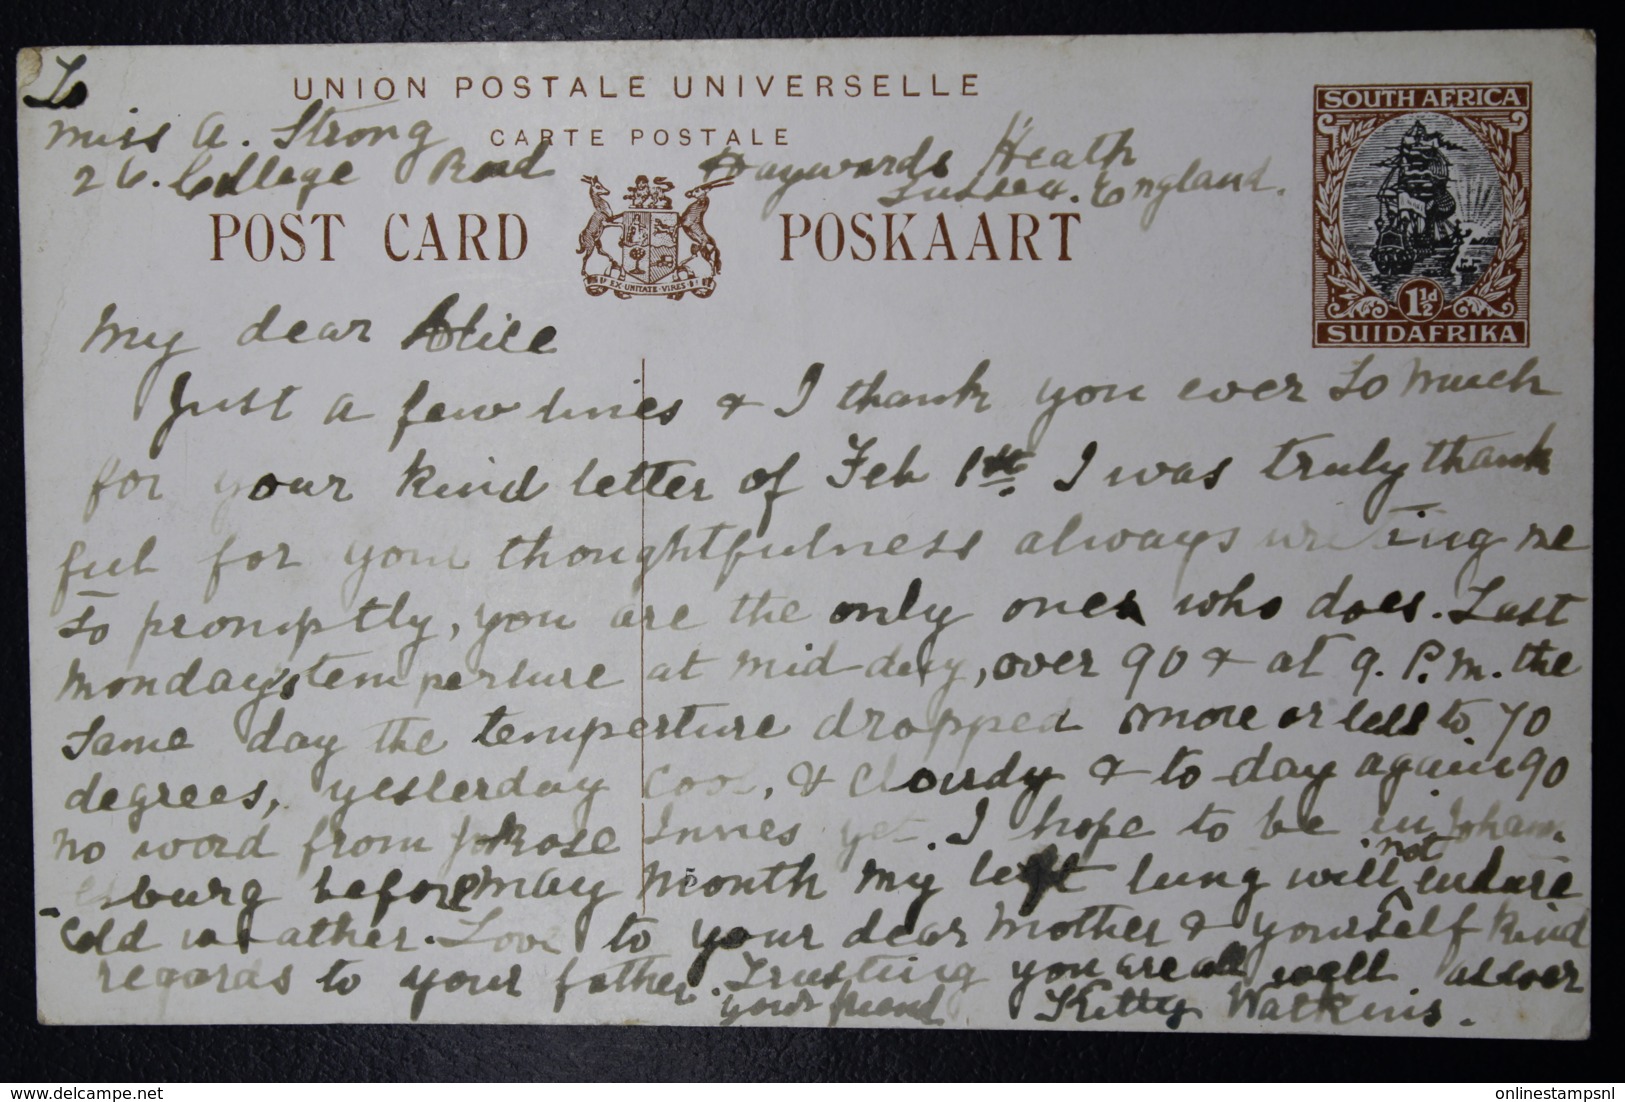 To
UNION POSTALE UNIVERSELLE
Miss A. Strong
CARTE POSTALE
26. College Road Haywards Heath
Sussex. England.
POST CARD POSKAART
EX UNITATE VIRES
SOUTH AFRICA
1½d
SUIDAFRIKA
My dear Alice
Just a few lines & I thank you ever so much
for your kind letter of Feb 1st. I was truly thank
ful for your thoughtfulness always writing me
so promptly, you are the only ones who does. Last
Monday's temperture at mid-day, over 90 & at 9. P.m. the
same day the temperture dropped more or less to 70
degrees, yesterday cool, & cloudy & to-day again 90
no word from Rose Innes yet. I hope to be in Johann-
esburg before May month my left lung will not endure
cold weather. Love to your dear Mother & yourself kind
regards to your father. Trusting you are all well as ever
your friend Kitty Watkins.
onlinestampsnl